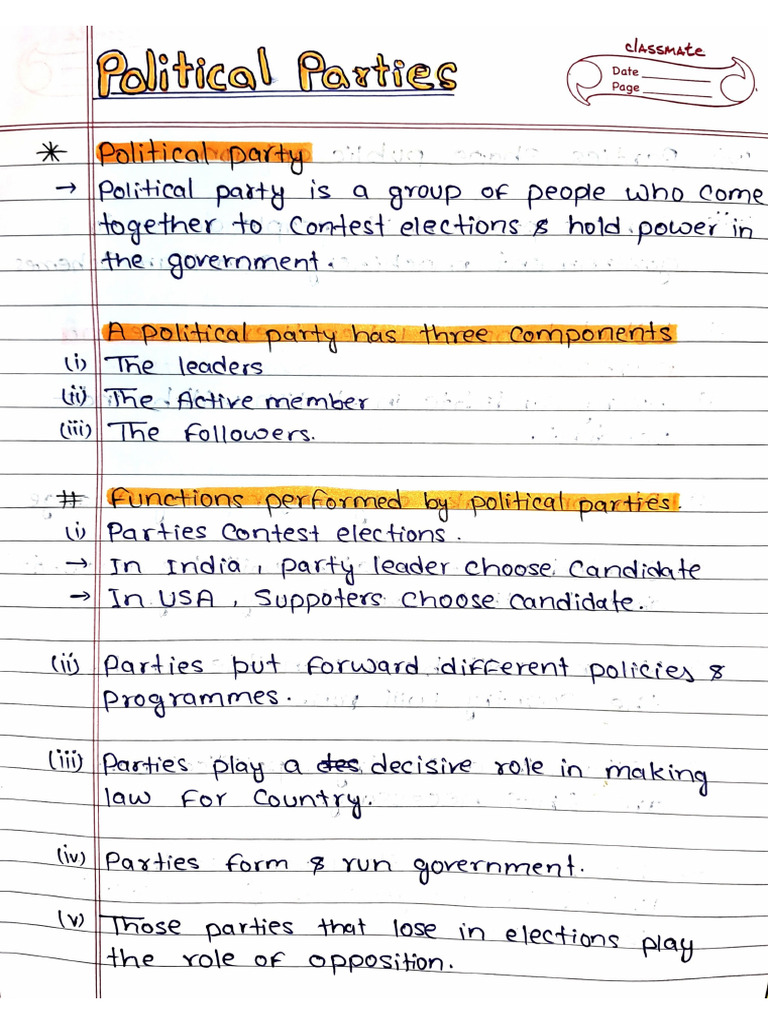 Political Parties
classmate
Date
Page
* Political party
→ Political party is a group of people who come
together to contest elections & hold power in
the government.
A political party has three components
(i) The leaders
(ii) The Active member
(iii) The followers.
# Functions performed by political parties.
(i) Parties contest elections.
→ In India, party leader choose candidate
→ In USA, Suppoters choose candidate.
(ii) Parties put forward different policies &
programmes.
(iii) Parties play a des decisive role in making
law for country.
(iv) Parties form & run government.
(v) Those parties that lose in elections play
the role of opposition.